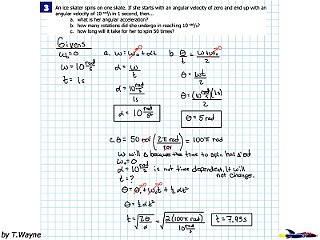 3 An ice skater spins on one skate. If she starts with an angular velocity of zero and end up with an
angular velocity of 10 rad/s in 1 second, then...
a. what is her angular acceleration?
b. how many rotations did she undergo in reaching 10 rad/s?
c. how long will it take for her to spin 50 times?
Givens
ω₀ = 0
ω = 10 rad/s
t = 1s
a. ω = ω₀ + αt
α = ω/t
α = 10 rad/s / 1s
α = 10 rad/s²
b. θ/t = (ω + ω₀)/2
θ = ωt/2
θ = (10 rad/s)(1s)/2
θ = 5 rad
c. θ = 50 rot (2π rad / 1 rot) = 100π rad
ω₀ = 0
α = 10 rad/s² is not time dependent, it will
not change.
t = ?
θ = θ₀ + ω₀t + ½αt²
θ = ½αt²
t = √(2θ/α) = √(2(100π rad) / 10 rad/s²)
t = 7.93s
by T.Wayne